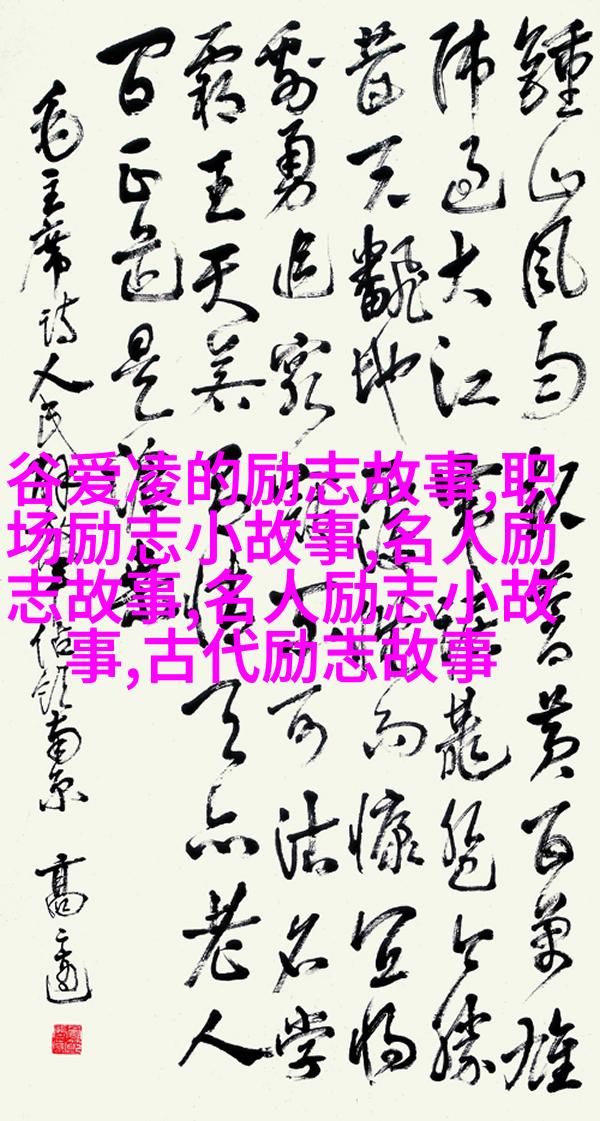 鍾山风雨起苍黄百万雄
师过大江虎踞龍盘今勝
昔天翻地覆慨而慷宜将
剩勇追穷寇不可沽名学
霸王天若有情天亦老人
间正道是沧桑
毛主席诗人民解放军佔领南京 高
谷爱凌的励志故事,职
场励志小故事,名人励
志故事,名人励志小故
事,古代励志故事